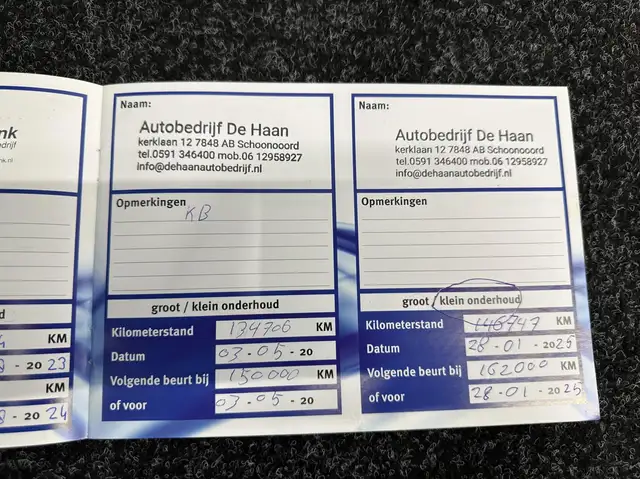 nk
drijf
nk.nl
KM
- 20 23
KM
- 20 24
Naam:
Autobedrijf De Haan
kerklaan 12 7848 AB Schoonooord
tel.0591 346400 mob.06 12958927
info@dehaanautobedrijf.nl
Opmerkingen
KB
groot / klein onderhoud
Kilometerstand 134706 KM
Datum 03-05-20
Volgende beurt bij 150000 KM
of voor 03-05-20
Naam:
Autobedrijf De Haan
kerklaan 12 7848 AB Schoonooord
tel.0591 346400 mob.06 12958927
info@dehaanautobedrijf.nl
Opmerkingen
groot / klein onderhoud
Kilometerstand 146747 KM
Datum 28-01-2025
Volgende beurt bij 162000 KM
of voor 28-01-2025